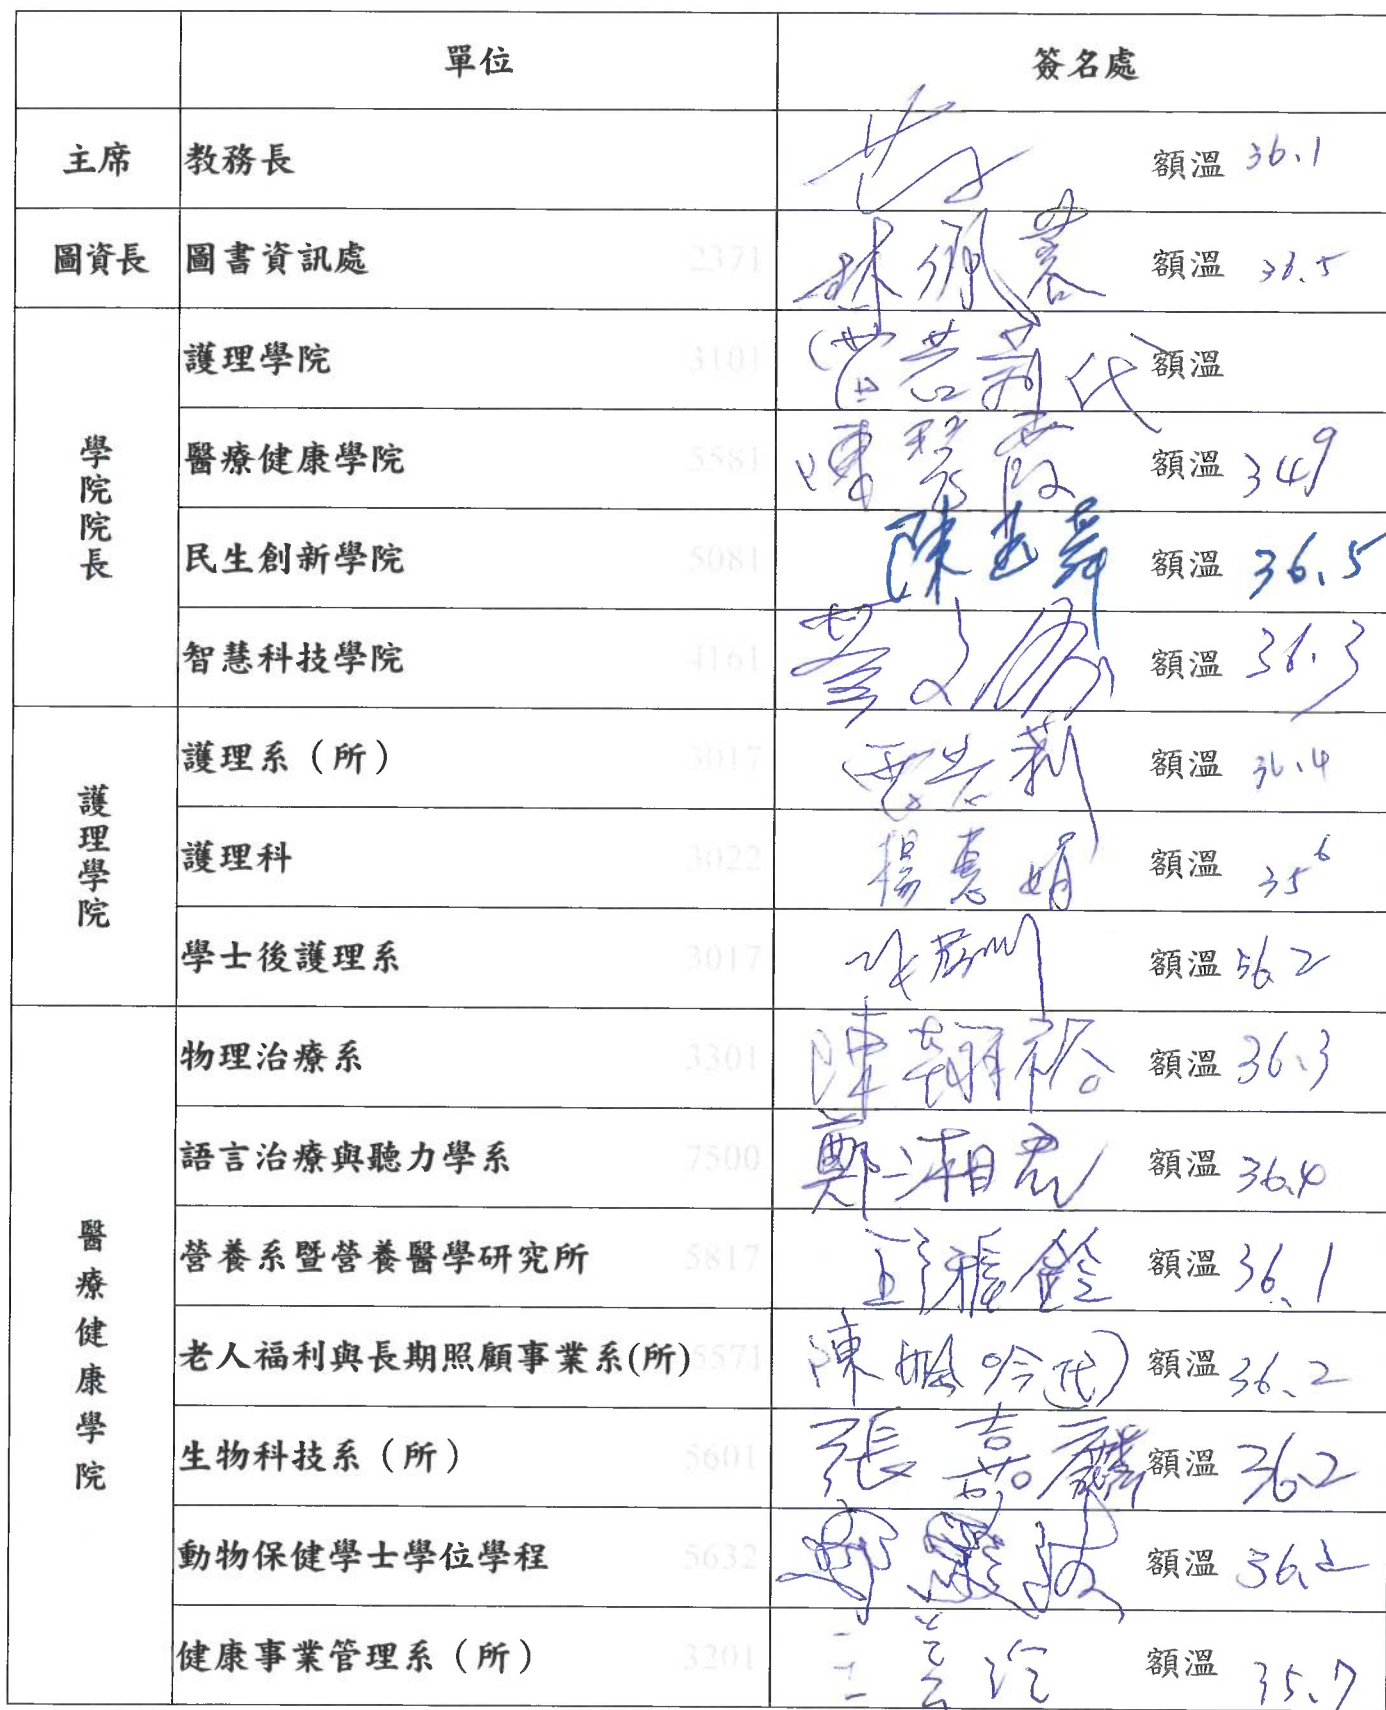 單位 簽名處
主席 教務長 額溫 36.1
圖資長 圖書資訊處 2371 林佩蓉 額溫 36.5
學院院長 護理學院 3101 代 額溫
醫療健康學院 5581 陳 額溫 34.9
民生創新學院 5081 陳 額溫 36.5
智慧科技學院 4161 額溫 36.3
護理學院 護理系（所） 3017 額溫 36.4
護理科 3022 楊惠娟 額溫 35.6
學士後護理系 3017 額溫 36.2
醫療健康學院 物理治療系 3301 陳翺裕 額溫 36.3
語言治療與聽力學系 7500 鄭湘君 額溫 36.4
營養系暨營養醫學研究所 5817 雅鈴 額溫 36.1
老人福利與長期照顧事業系(所) 5571 陳 吟(代) 額溫 36.2
生物科技系（所） 5601 張嘉麟 額溫 36.2
動物保健學士學位學程 5632 額溫 36.2
健康事業管理系（所） 3201 王 額溫 35.7